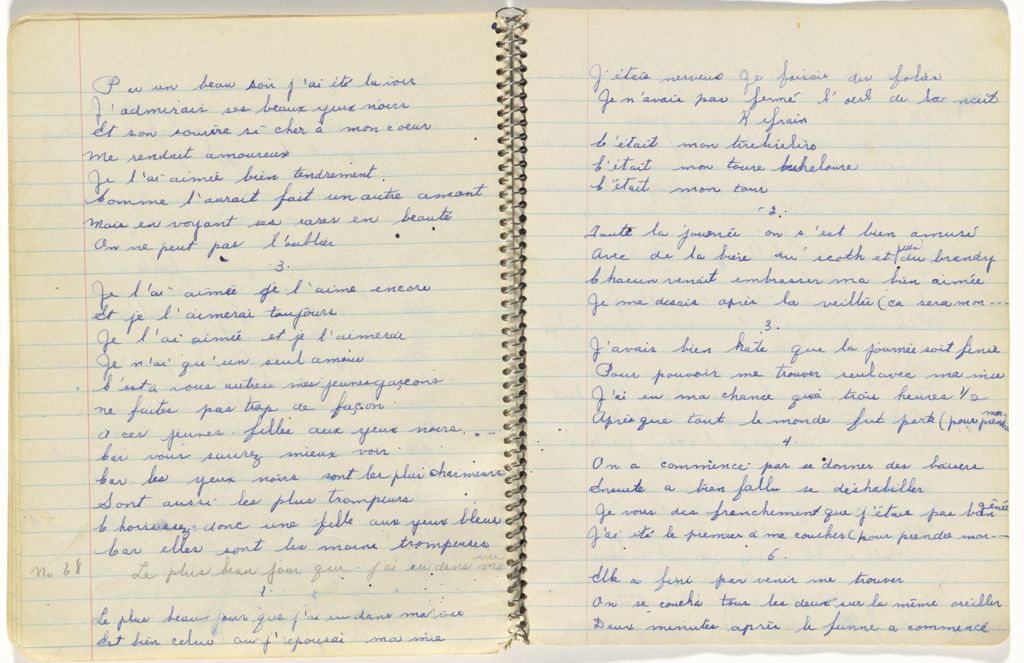 Par un beau soir j'ai été la voir
J'admirais ses beaux yeux noirs
Et son sourire si cher à mon coeur
Me rendait amoureux
Je l'ai aimée bien tendrement.
Comme l'aurait fait un autre amant
Mais en voyant ses rares en beauté
On ne peut pas l'oublier
3.
Je l'ai aimée je l'aime encore
Et je l'aimerai toujours
Je l'ai aimée et je l'aimerai
Je n'ai qu'un seul amour
C'est à vous autres mes jeunes garçons
ne faites pas trop de façon
a ces jeunes filles aux yeux noirs.
Car vous saurez mieux voir
Car les yeux noirs sont les plus charmeurs
Sont aussi les plus trompeurs
Choississez donc une fille aux yeux bleus
Car elles sont les moins trompeuses
No 68 Le plus beau jour que j'ai eu dans ma vie
1
Le plus beau jour que j'ai eu dans ma vie
Est bien celui où j'épousai ma mie
J'étais nerveux Je faisais des folies
Je n'avais pas fermé l'oeil de la nuit
Refrain
C'était mon
C'était mon toure
C'était mon tour
2.
Toute la journée on s'est bien amusé
Avec de la bière du scoth et puis du brandy
Chacun venait embrasser ma bien aimée
Je me disais après la veillée (ça sera mon ---
3.
J'avais bien hâte que la journée soit finie
Pour pouvoir me trouver seul avec ma mie
J'ai eu ma chance qu'à trois heures 1/2
Après que tout le monde fut parti (pour prendre mon
4.
On a commencé par se donner des baisers
Ensuite a bien fallu se déshabiller
Je vous dis franchement que j'étais pas bien gênée
J'ai été le premier à me coucher (pour prendre mon ---
5.
Elle a fini par venir me trouver
On se coucha tous les deux sur la même oreiller
Deux minutes après le funne a commencé